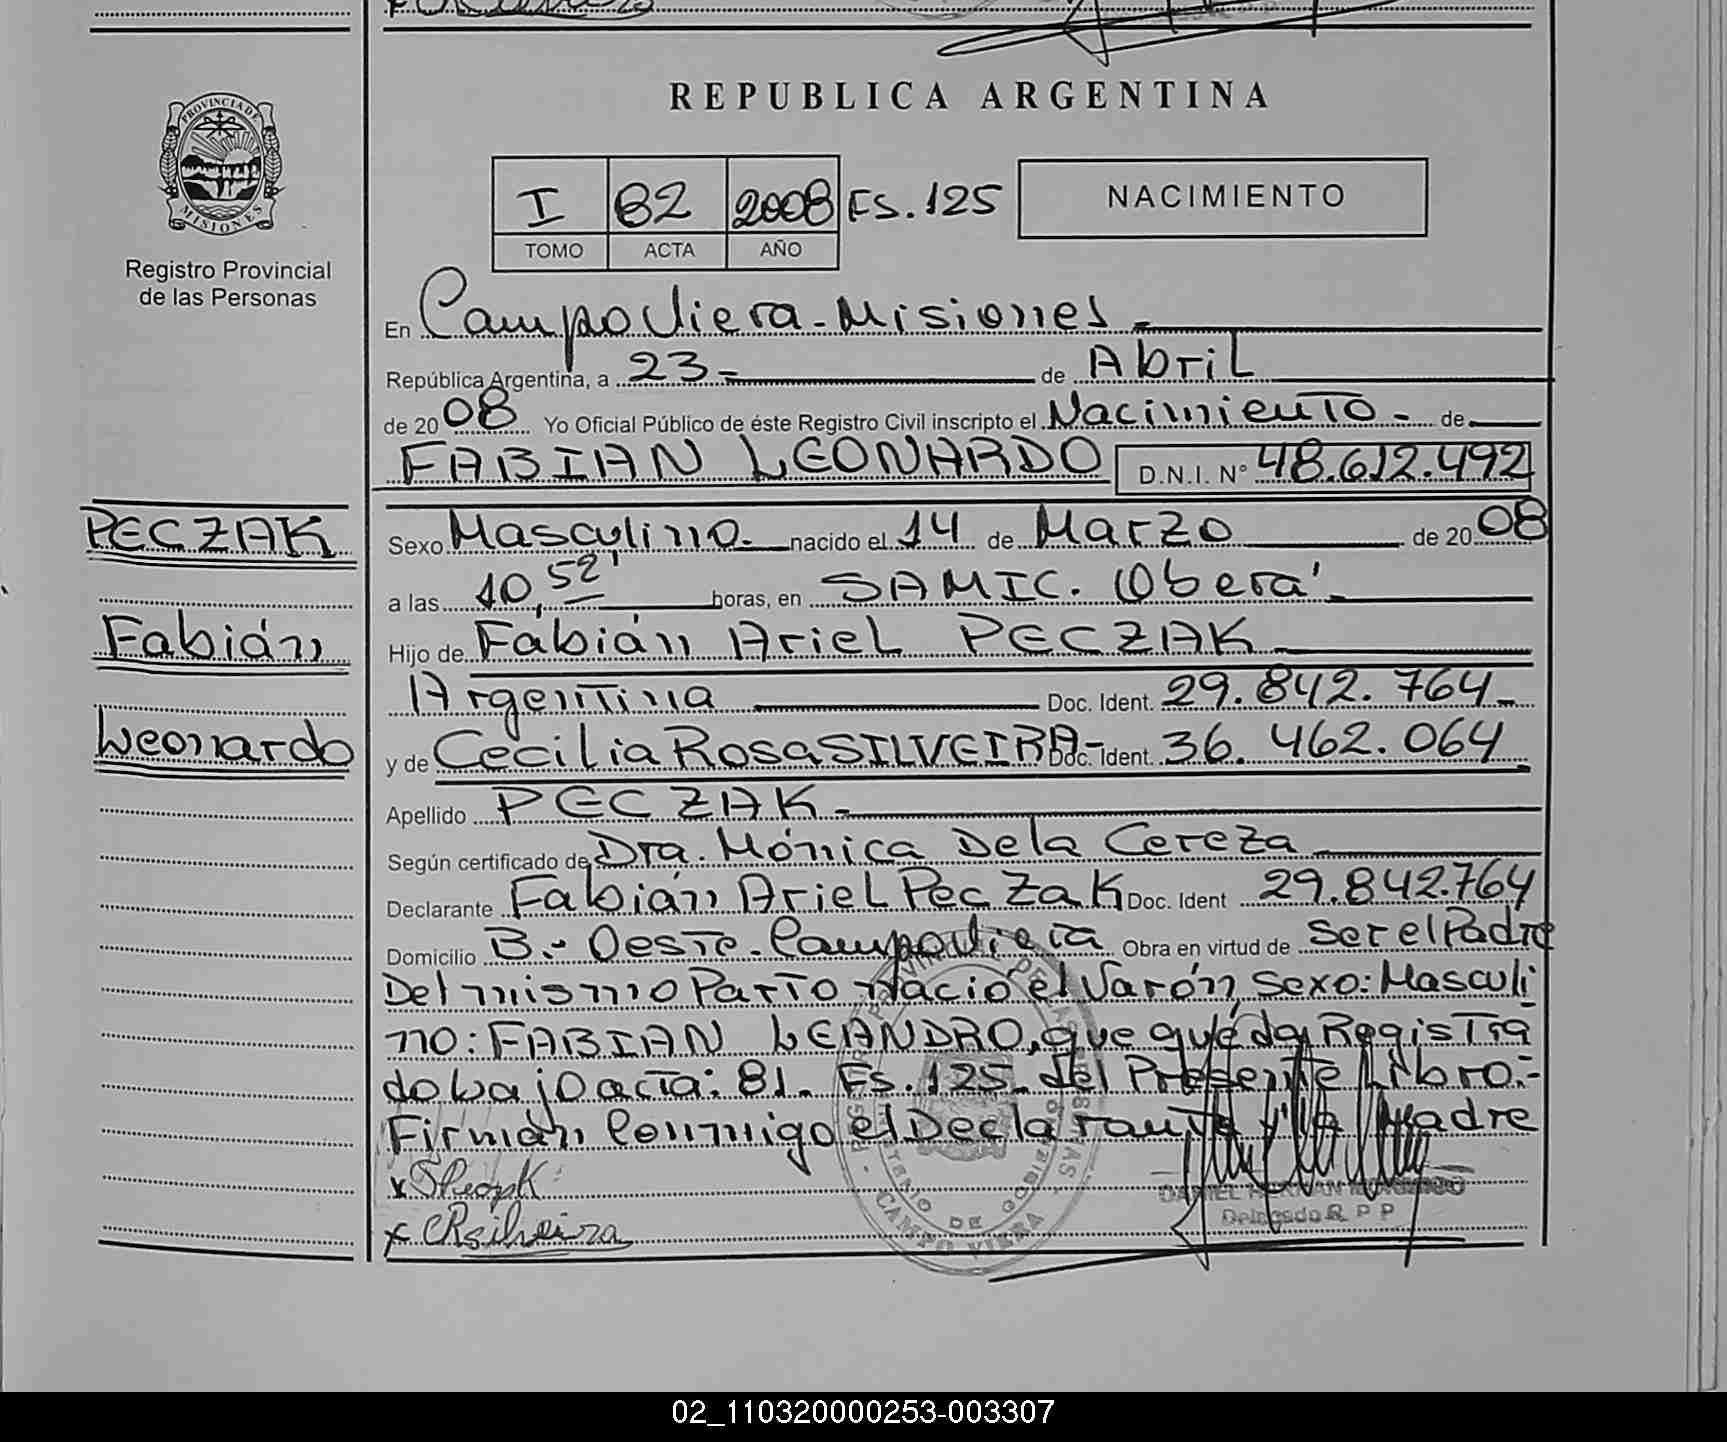 REPUBLICA ARGENTINA
PROVINCIA DE MISIONES
Registro Provincial
de las Personas
I 82 2008 Fs. 125
TOMO ACTA AÑO
NACIMIENTO
En Campo Viera - Misiones -
República Argentina, a 23 - de Abril
de 2008 Yo Oficial Público de éste Registro Civil inscripto el Nacimiento - de
FABIAN LEONARDO D.N.I. N° 48.612.492
PECZAK
Fabián
Leonardo
Sexo Masculino. nacido el 14 de Marzo de 2008
a las 10,52' horas, en SAMIC. Oberá -
Hijo de Fabián Ariel PECZAK -
Argentina Doc. Ident. 29.842.764 -
y de Cecilia Rosa SILVEIRA - Doc. Ident. 36.462.064
Apellido PECZAK -
Según certificado de Dra. Mónica De la Cereza
Declarante Fabián Ariel Peczak Doc. Ident 29.842.764
Domicilio B.- Oeste - Campo Viera Obra en virtud de ser el Padre
Del mismo Parto nació el Varón, Sexo: Masculi
no: FABIAN LEANDRO, que queda Registra
do bajo acta: 81. Fs. 125 del Presente Libro.-
Firman Conmigo el Declarante y la Madre
x
x CRsilveira
CAMPO VIERA
Delegado R P P
02_110320000253-003307